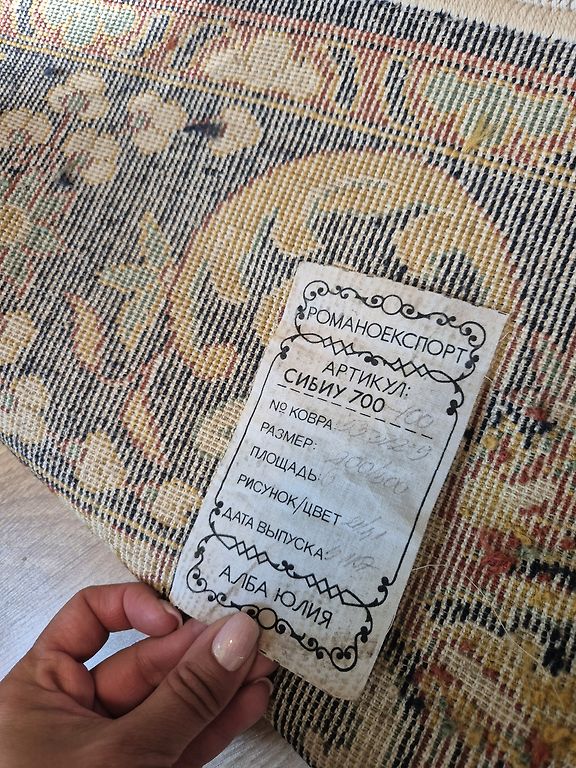 РОМАНОЕКСПОРТ
АРТИКУЛ:
СИБИУ 700
№ КОВРА
РАЗМЕР:
ПЛОЩАДЬ:
РИСУНОК/ЦВЕТ
ДАТА ВЫПУСКА:
АЛБА ЮЛИЯ